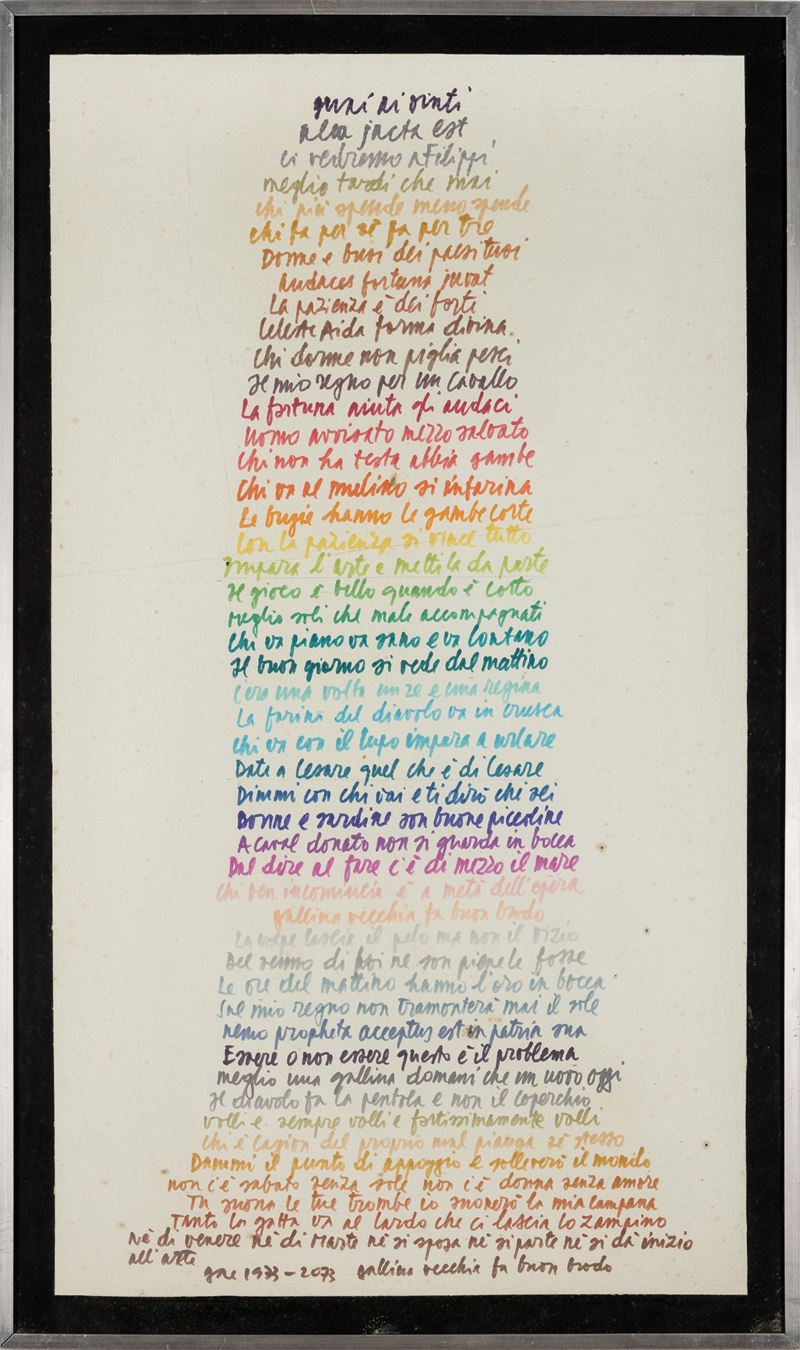 guai ai vinti
alea jacta est
ci vedremo a Filippi
meglio tardi che mai
chi più spende meno spende
chi fa per sé fa per tre
Donne e buoi dei paesi tuoi
audaces fortuna juvat
La pazienza è dei forti
Celeste Aida forma divina.
Chi dorme non piglia pesci
Il mio regno per un cavallo
La fortuna aiuta gli audaci
Uomo avvisato mezzo salvato
Chi non ha testa abbia gambe
Chi va al mulino si infarina
Le bugie hanno le gambe corte
Con la pazienza si vince tutto
Impara l'arte e mettila da parte
Il gioco è bello quando è corto
meglio soli che male accompagnati
Chi va piano va sano e va lontano
Il buon giorno si vede dal mattino
C'era una volta un re e una regina
La farina del diavolo va in crusca
Chi va con il lupo impara a urlare
Date a Cesare quel che è di Cesare
Dimmi con chi vai e ti dirò chi sei
Donne e sardine son buone piccoline
A caval donato non si guarda in bocca
Dal dire al fare c'è di mezzo il mare
Chi ben incomincia è a metà dell'opera
gallina vecchia fa buon brodo
La volpe lascia il pelo ma non il vizio
Del senno di poi ne son piene le fosse
Le ore del mattino hanno l'oro in bocca
Sul mio regno non tramonterà mai il sole
nemo propheta acceptus est in patria sua
Essere o non essere questo è il problema
meglio una gallina domani che un uovo oggi
Il diavolo fa la pentola e non il coperchio
volli e sempre volli e fortissimamente volli
chi è cagion del proprio mal pianga sé stesso
Dammi il punto di appoggio e solleverò il mondo
non c'è sabato senza sole non c'è donna senza amore
Tu suona le tue trombe io suonerò la mia campana
Tanto la gatta va al lardo che ci lascia lo zampino
Né di venere né di Marte né si sposa né si parte né si dà inizio
all'arte
1973-2073 gallina vecchia fa buon brodo